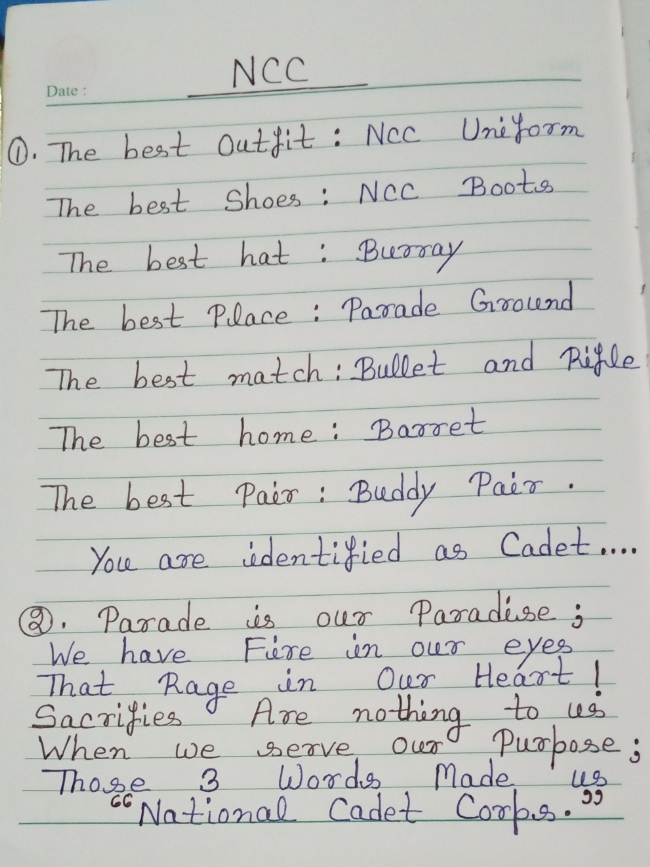 NCC
Date :
①. The best Outfit : NCC Uniform
The best Shoes : NCC Boots
The best hat : Burray
The best Place : Parade Ground
The best match : Bullet and Rifle
The best home : Barret
The best Pair : Buddy Pair .
You are identified as Cadet ....
②. Parade is our Paradise ;
We have Fire in our eyes
That Rage in Our Heart !
Sacrifies Are nothing to us
When we serve our Purpose ;
Those 3 Words Made us
“National Cadet Corps.”